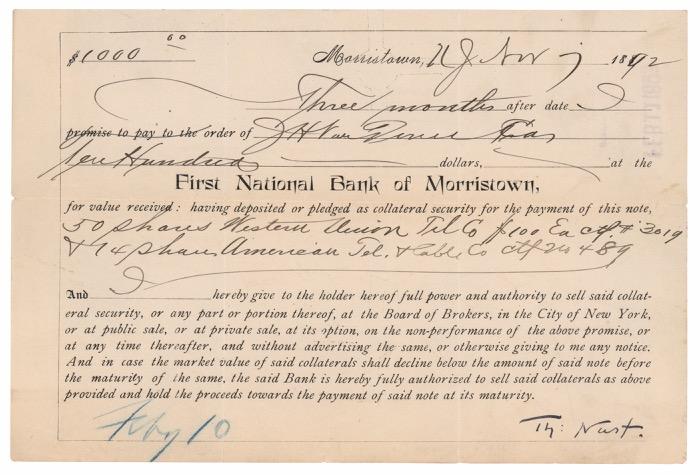 $1000 00
Morristown, N J Nov 7 1892
Three months after date I
promise to pay to the order of J H Van Doren Cas
Ten Hundred dollars, at the
First National Bank of Morristown,
for value received: having deposited or pledged as collateral security for the payment of this note,
50 shares Western Union Tel Co $100 Ea ctf # 3019
& 14 shares American Tel. & Cable Co ctf No 489
And I hereby give to the holder hereof full power and authority to sell said collat-
eral security, or any part or portion thereof, at the Board of Brokers, in the City of New York,
or at public sale, or at private sale, at its option, on the non-performance of the above promise, or
at any time thereafter, and without advertising the same, or otherwise giving to me any notice.
And in case the market value of said collaterals shall decline below the amount of said note before
the maturity of the same, the said Bank is hereby fully authorized to sell said collaterals as above
provided and hold the proceeds towards the payment of said note at its maturity.
Feby 10
Th: Nast.